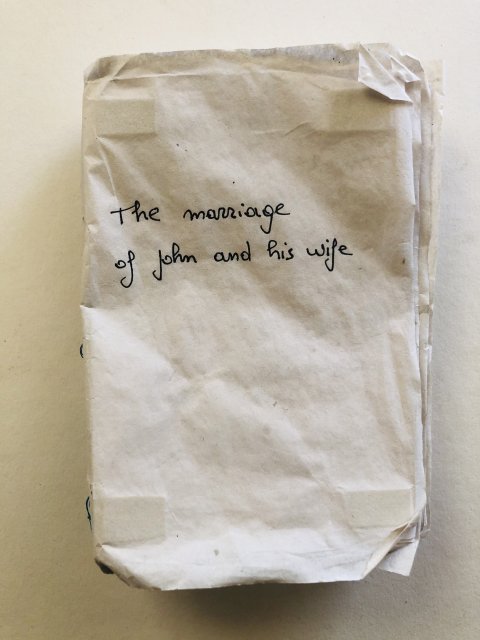 The marriage
of John and his wife